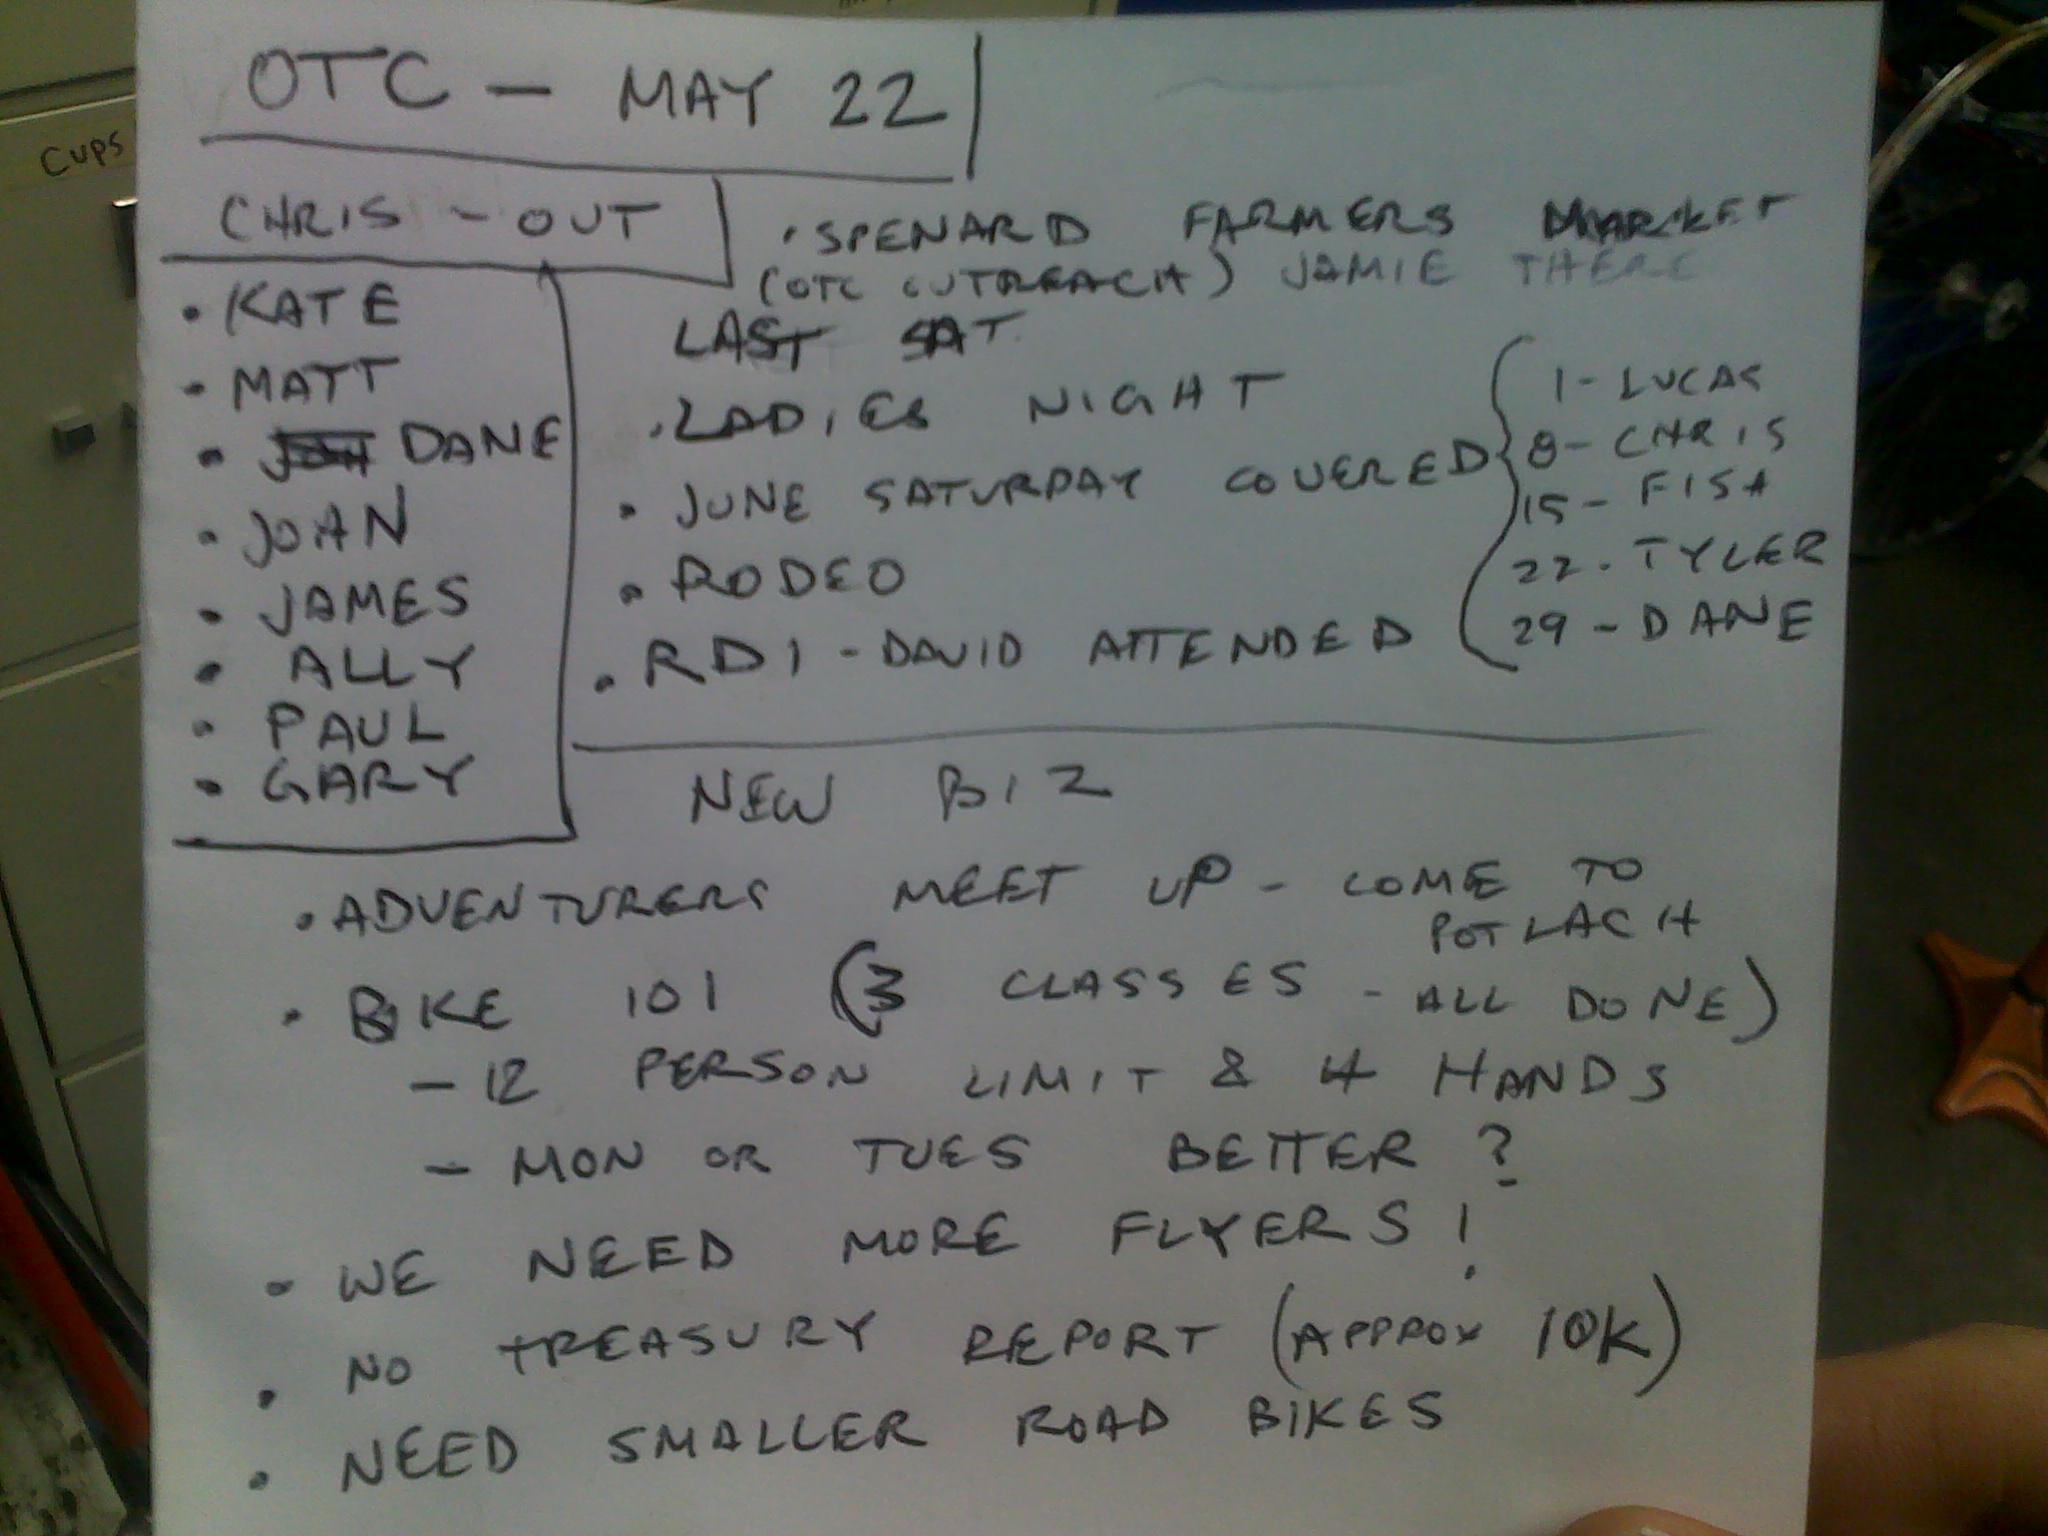 OTC - MAY 22
CUPS
CHRIS - OUT
• KATE
• MATT
• DANE
• JOAN
• JAMES
• ALLY
• PAUL
• GARY
• SPENARD FARMERS MARKET
(OTC OUTREACH) JAMIE THERE
LAST SAT.
• LADIES NIGHT
• JUNE SATURDAY COVERED
1 - LUCAS
8 - CHRIS
15 - FISH
22 - TYLER
29 - DANE
• RODEO
• RDI - DAVID ATTENDED
NEW BIZ
• ADVENTURERS MEET UP - COME TO
POTLACH
• BIKE 101 (3 CLASSES - ALL DONE)
- 12 PERSON LIMIT & 4 HANDS
- MON OR TUES BETTER?
• WE NEED MORE FLYERS!
• NO TREASURY REPORT (APPROX 10K)
• NEED SMALLER ROAD BIKES